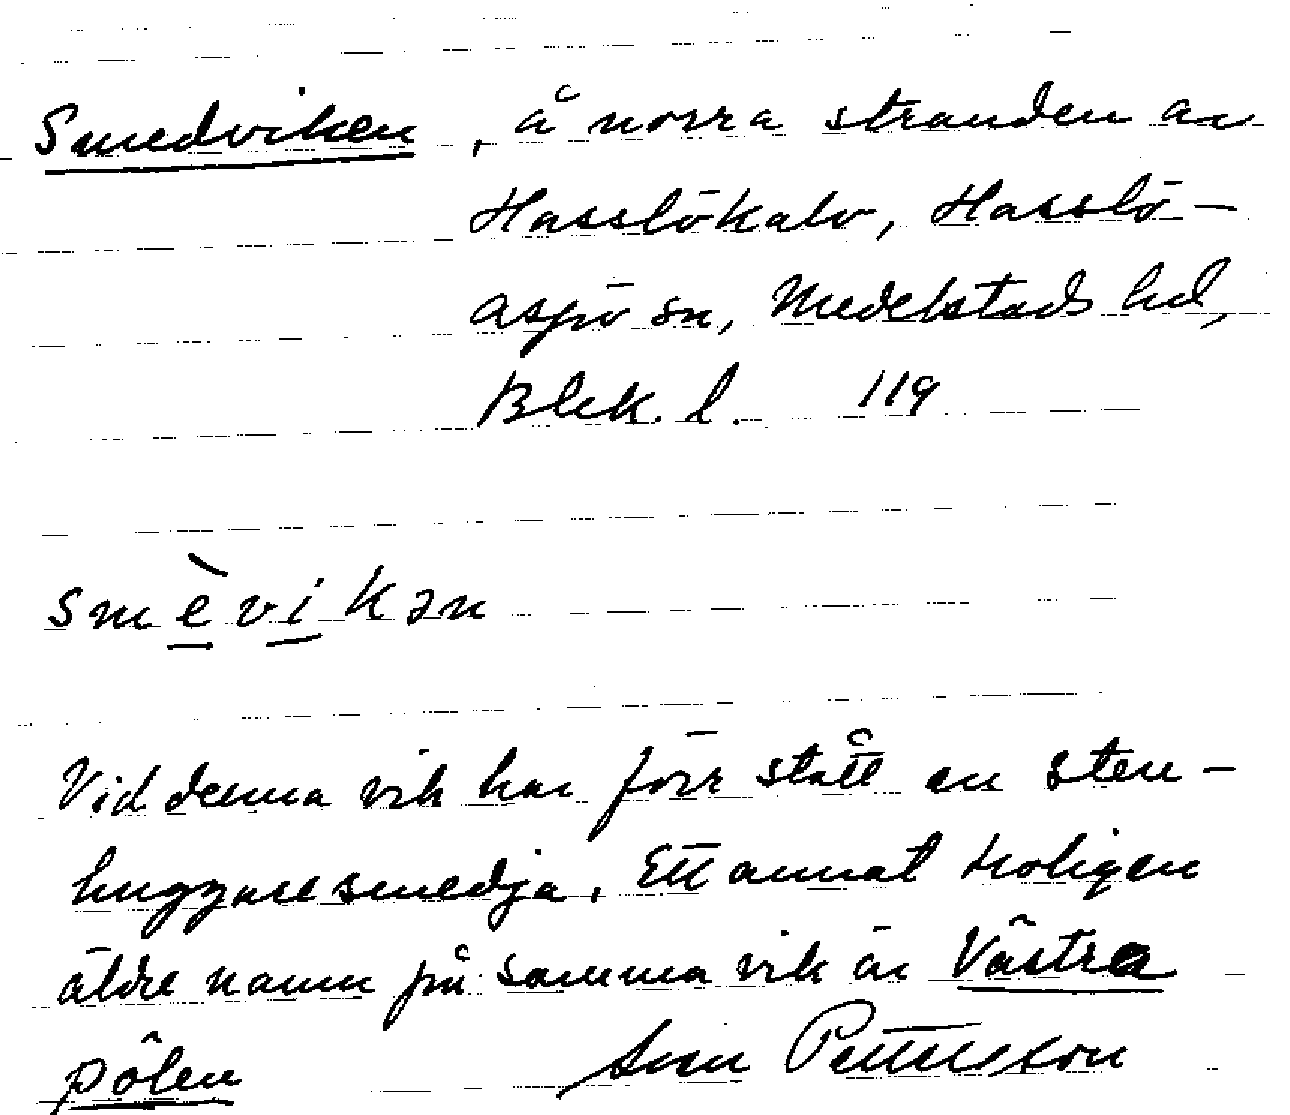 Smedviken, å norra stranden av
Hasslökalv, Hasslö-
aspö sn, Medelstads hd,
Blek. l. 119
smèvikən
Vid denna vik har förr stått en sten-
huggaresmedja. Ett annat troligen
äldre namn på samma vik är Västra
pölen Sven Pettersson